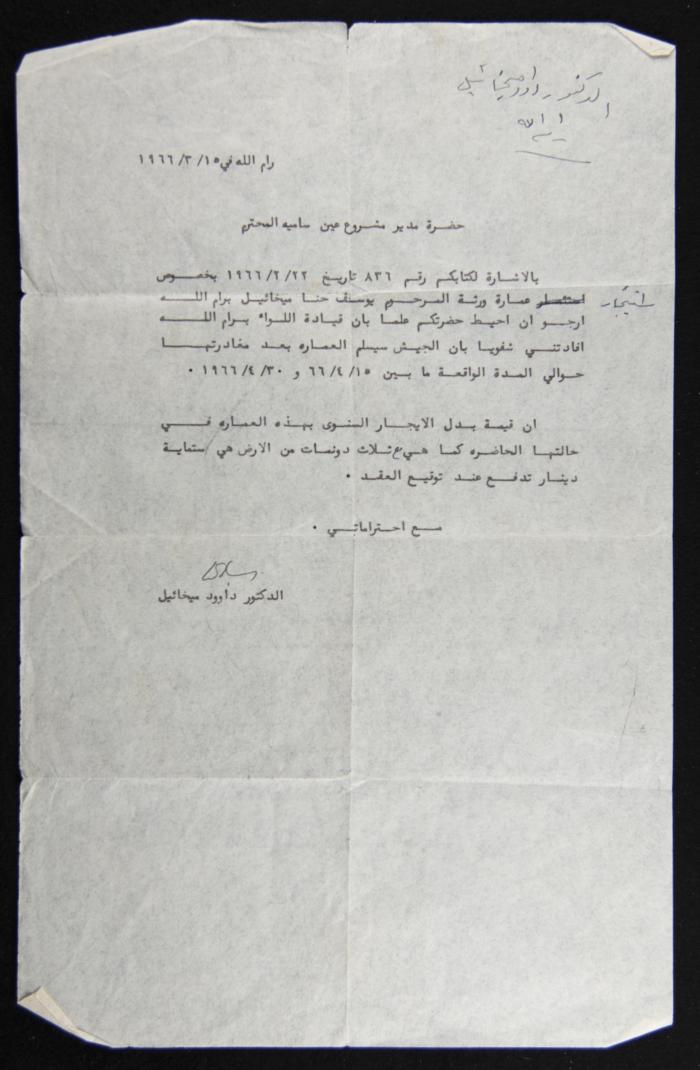 الدكتور داود ميخائيل
رام الله
رام الله في ١٥/ ٣/ ١٩٦٦
حضرة مدير مشروع عين ساميه المحترم
بالاشارة لكتابكم رقم ٨٣٦ تاريخ ١٩٦٦/٢/٢٢ بخصوص
استئجار عمارة ورثة المرحوم يوسف حنا ميخائيل برام اللــه
ارجــو ان احيـط حضرتكم علما بان قيادة اللـواء بـرام اللــه
افادتنــي شفويا بان الجيش سيسلم العماره بعـد مغادرتهــا
حـوالي المدة الواقعـة ما بـين ٦٦/٤/١٥ و ١٩٦٦/٤/٣٠ ٠
ان قيمـة بـدل الايجـار السنوى بهـذه العمـاره فــي
حالتهـا الحاضـره كمـا هـي مع ثـلاث دونمـات من الارض هي ستمايـة
دينـار تدفـع عنـد توقيـع العقـد ٠
مــع احتـراماتــي ٠
الدكتور داوود ميخائيل